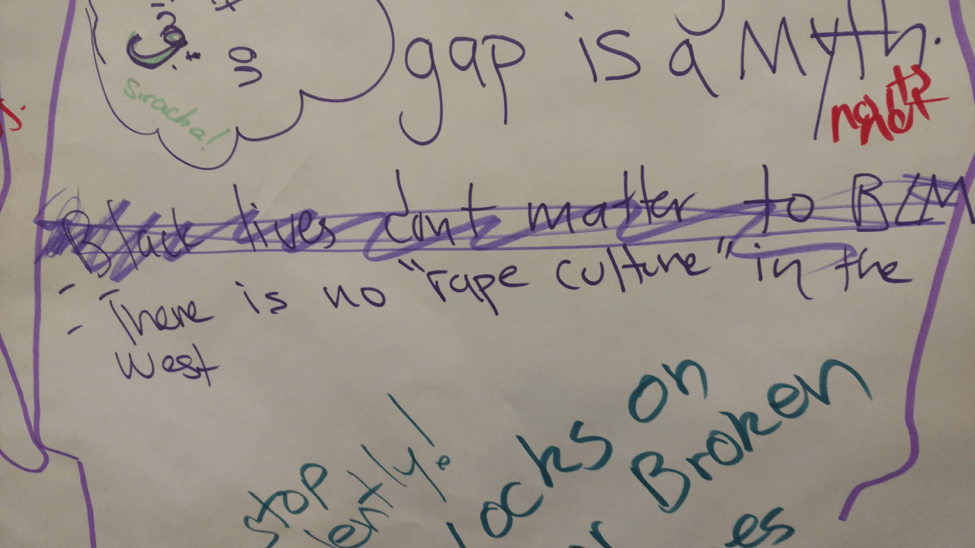 on
siracha!
gap is a Myth.
Black lives dont matter to BLM
- There is no "rape culture" in the
West
stop
locks on
Broken